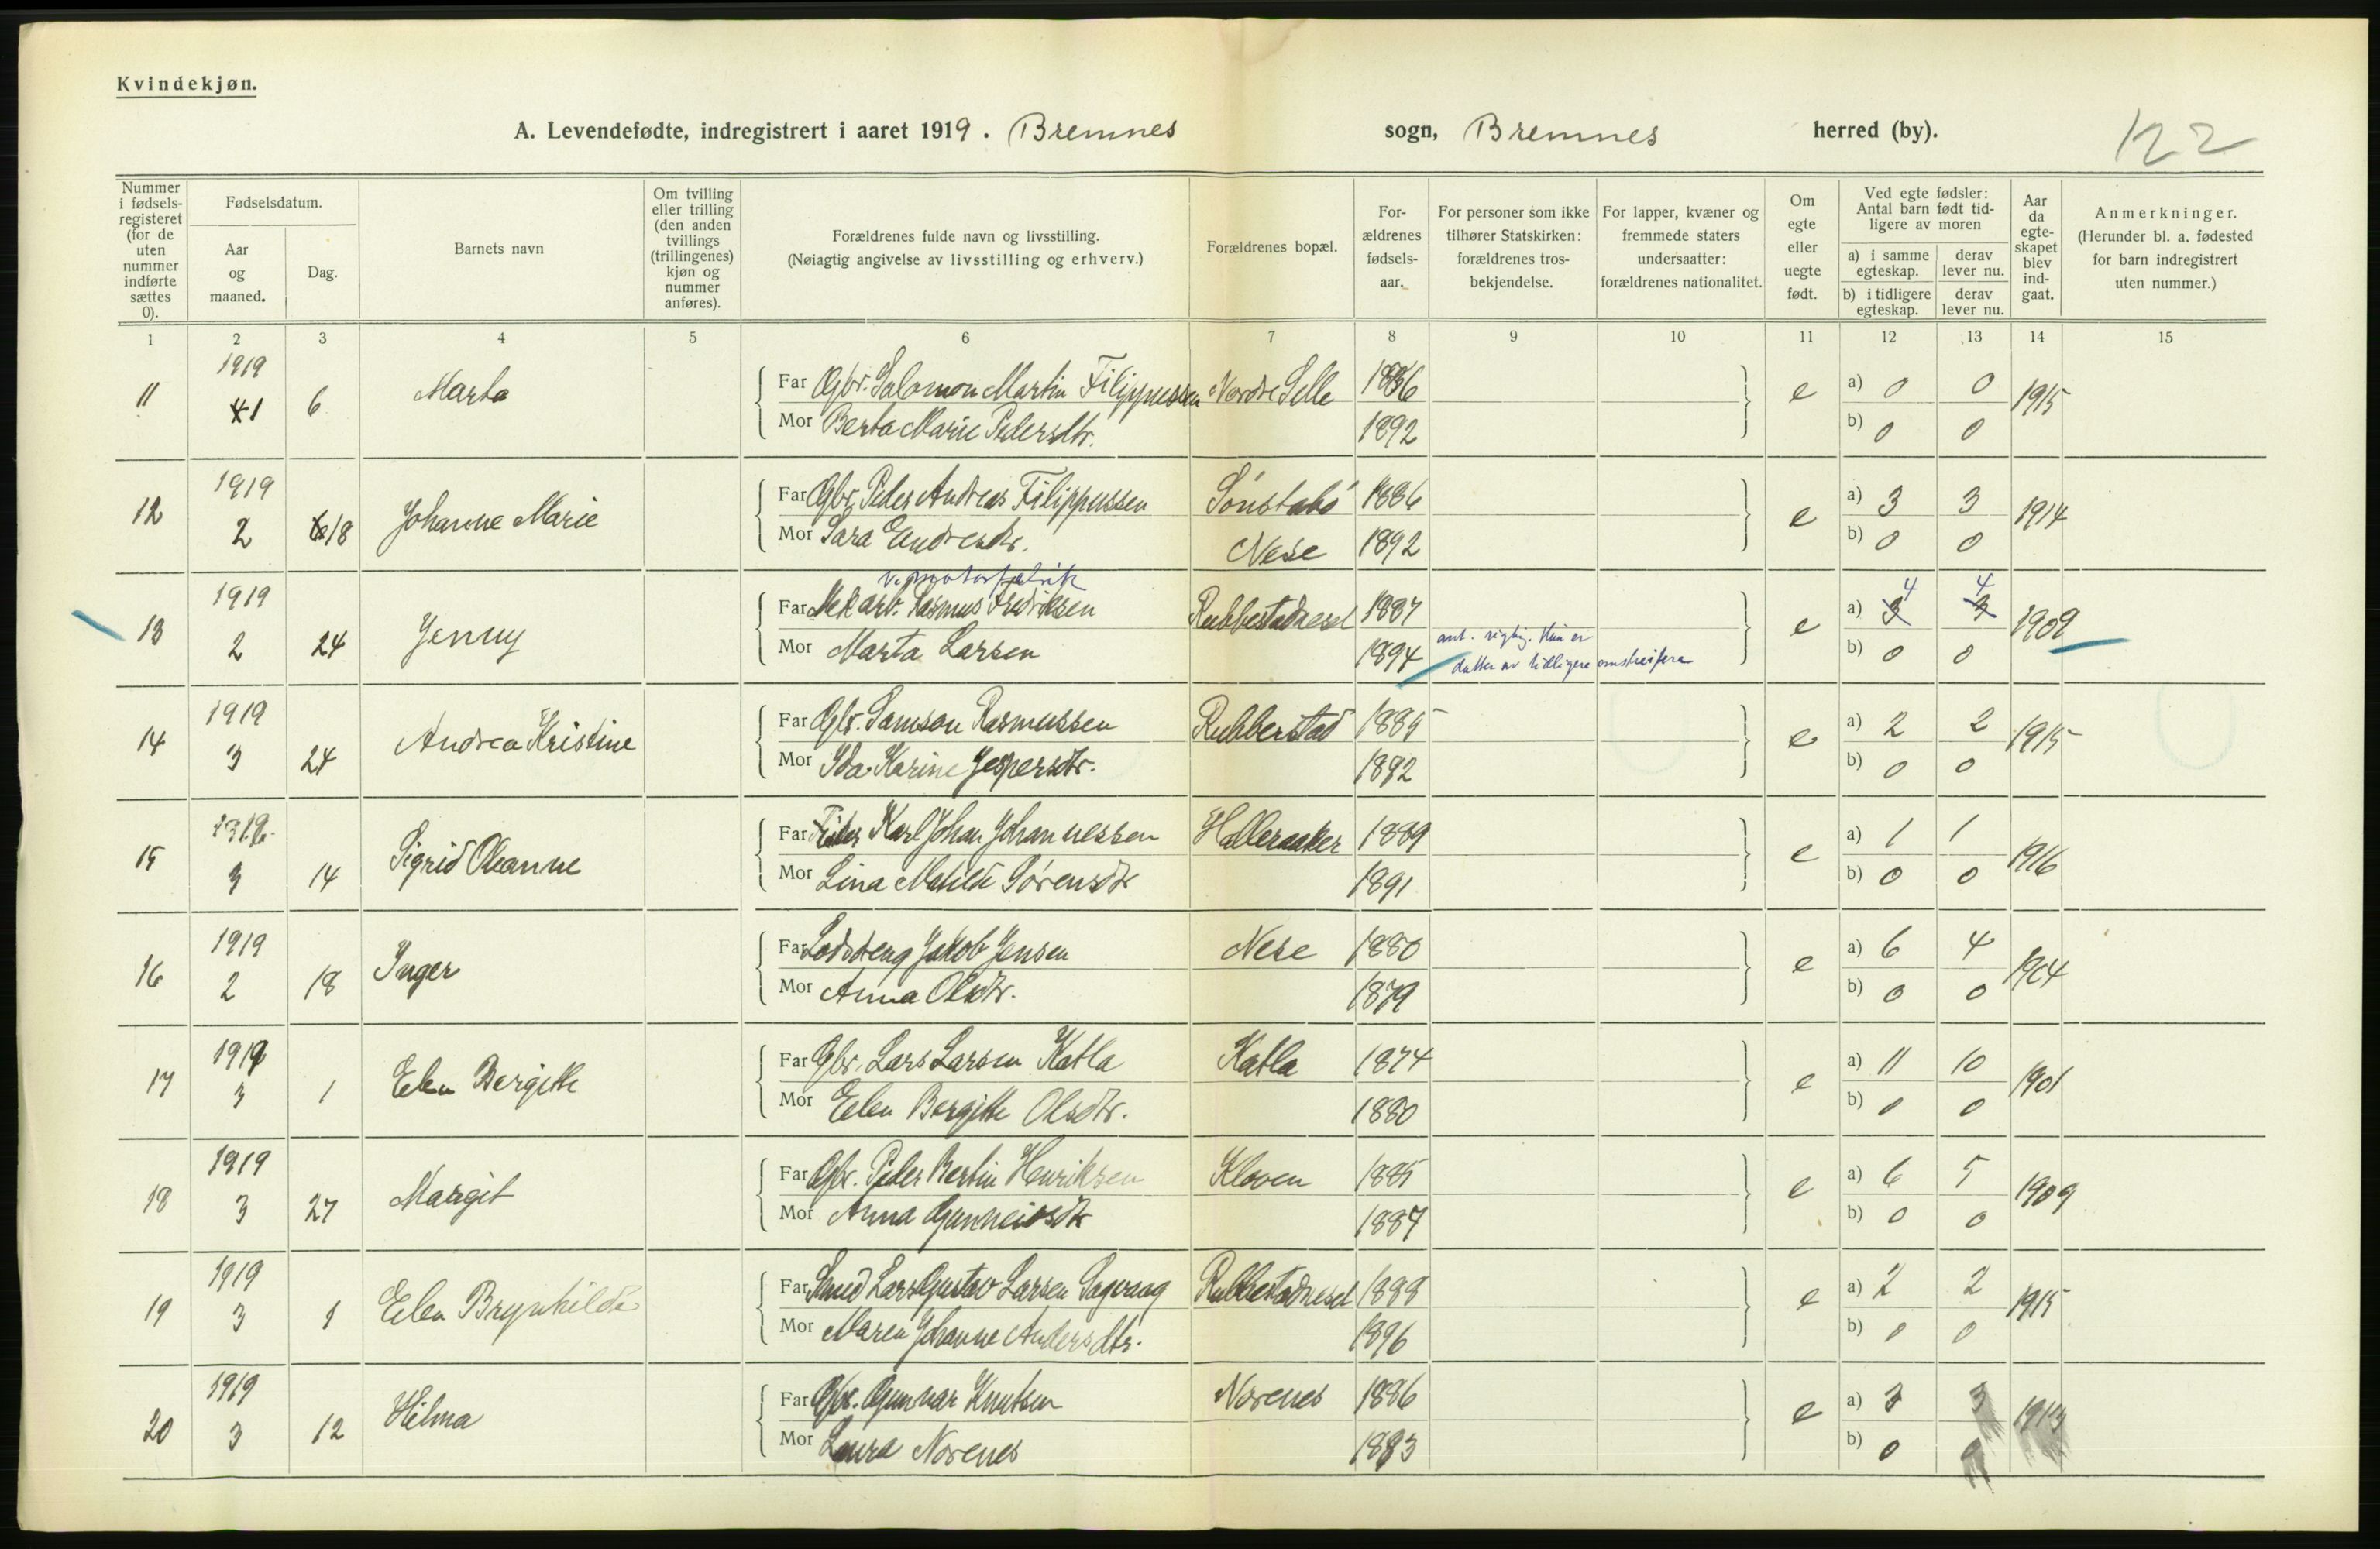 Kvindekjøn.
A. Levendefødte, indregistrert i aaret 1919. Bremnes sogn, Bremnes herred (by).
122
Nummer i fødsels-registeret (for de uten nummer indførte sættes 0).
Fødselsdatum.
Aar og maaned.
Dag.
Barnets navn
Om tvilling eller trilling (den anden tvillings (trillingenes) kjøn og nummer anføres).
Forældrenes fulde navn og livsstilling.
(Nøiagtig angivelse av livsstilling og erhverv.)
Forældrenes bopæl.
For-ældrenes fødsels-aar.
For personer som ikke tilhører Statskirken: forældrenes tros-bekjendelse.
For lapper, kvæner og fremmede staters undersaatter: forældrenes nationalitet.
Om egte eller uegte født.
Ved egte fødsler: Antal barn født tid-ligere av moren
a) i samme egteskap.
derav lever nu.
b) i tidligere egteskap.
derav lever nu.
Aar da egte-skapet blev ind-gaat.
Anmerkninger.
(Herunder bl. a. fødested for barn indregistrert uten nummer.)
1 2 3 4 5 6 7 8 9 10 11 12 13 14 15
11 1919 1 6 Marta Far Gbr. Salomon Martin Filippussen Nordre Selle 1886 e a) 0 0 1915
Mor Berta Marie Pedersdtr. 1892 b) 0 0
12 1919 2 18 Johanne Marie Far Gbr. Peder Andreas Filippussen Sønstabø 1886 e a) 3 3 1914
Mor Sara Endresdtr. Nese 1892 b) 0 0
v. motorfabrik
13 1919 2 24 Jenny Far Mek. arb. Rasmus Fredriksen Rubbestadneset 1887 e a) 4 4 1909
Mor Marta Larsen 1894 ant. rigtig. Hun er b) 0 0
datter av tidligere omstreifere
14 1919 3 24 Andrea Kristine Far Gbr. Samson Rasmussen Rubberstad 1885 e a) 2 2 1915
Mor Ida Karine Jespersdtr. 1892 b) 0 0
15 1919 3 14 Sigrid Oleanne Far Karl Johan Johannessen Halleraaker 1889 e a) 1 1 1916
Mor Lina Matilde Sørensdtr 1891 b) 0 0
16 1919 2 18 Inger Far Jakob Jensen Nese 1880 e a) 6 4 1904
Mor Anna Olsdtr. 1879 b) 0 0
17 1919 3 1 Elen Bergitte Far Gbr. Lars Larsen Katla Katla 1874 e a) 11 10 1901
Mor Elen Bergitte Olsdtr. 1880 b) 0 0
18 1919 3 27 Margit Far Gbr. Peder Bertin Henriksen Kloven 1885 e a) 6 5 1909
Mor Anna 1887 b) 0 0
19 1919 3 1 Elen Brynhilda Far Smed Lars Gustav Larsen Sagvaag Rubbestadneset 1888 e a) 2 2 1915
Mor Maren Johanne Andersdtr. 1896 b) 0 0
20 1919 3 12 Hilma Far Gbr. Gunnar Knutsen Norenes 1886 e a) 3 3 1913
Mor Laura Norenes 1883 b) 0 0